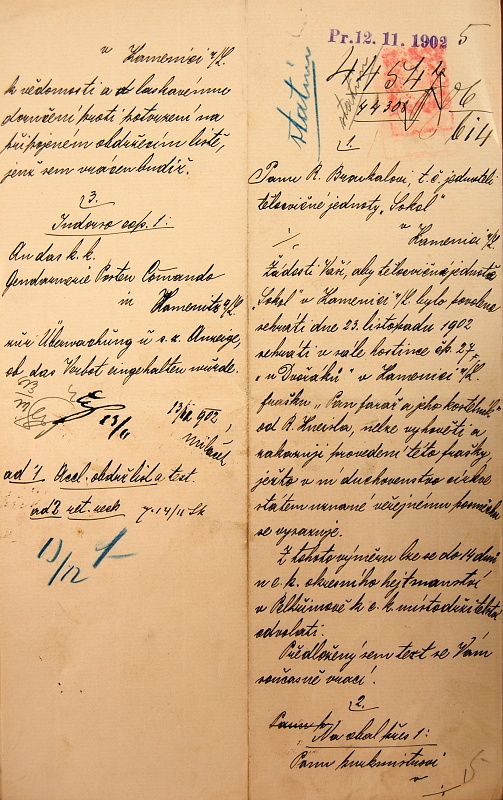 Pr. 12. 11. 1902 5
statni
44541
44308
614
1.
Panu R. Brackalovi, t. č. jednateli
tělocvičné jednoty „Sokol"
v Kamenici n/L.
Žádosti Vaší, aby tělocvičné jednotě
„Sokol" v Kamenici n/L. bylo povoleno
sehráti dne 23. listopadu 1902
sehráti v sále hostince čp. 27
„u Dvořáků" v Kamenici n/L.
frašku „Pan farář a jeho kostelník"
od R. nelze vyhověti a
zakazuji provedení této frašky,
ježto v ní duchovenstvo církve
státem uznané veřejnému posměchu
se vysazuje.
Z tohoto výměru lze se do 14 dnů
u c. k. okresního hejtmanství
v Pelhřimově k c. k. místodržitelství
odvolati.
Předložený sem text se Vám
současně vrací.
2.
Na obal přes 1:
Panu purkmistrovi
v Kamenici n/L.
k vědomosti a laskavému
doručení proti potvrzení na
připojeném obdržecím listě,
jenž sem vrácen budiž.
3.
Indorso cop. 1:
An das k. k.
Gendarmerie Posten Comando
in Kamenitz a/L.
zur Überwachung u. s. z. Anzeige,
ob das Verbot eingehalten wurde.
13/11
13/11 902
ad 1. Acel. obdrž. list a text.
ad 2 ret. rec.
14/11
13/12
15